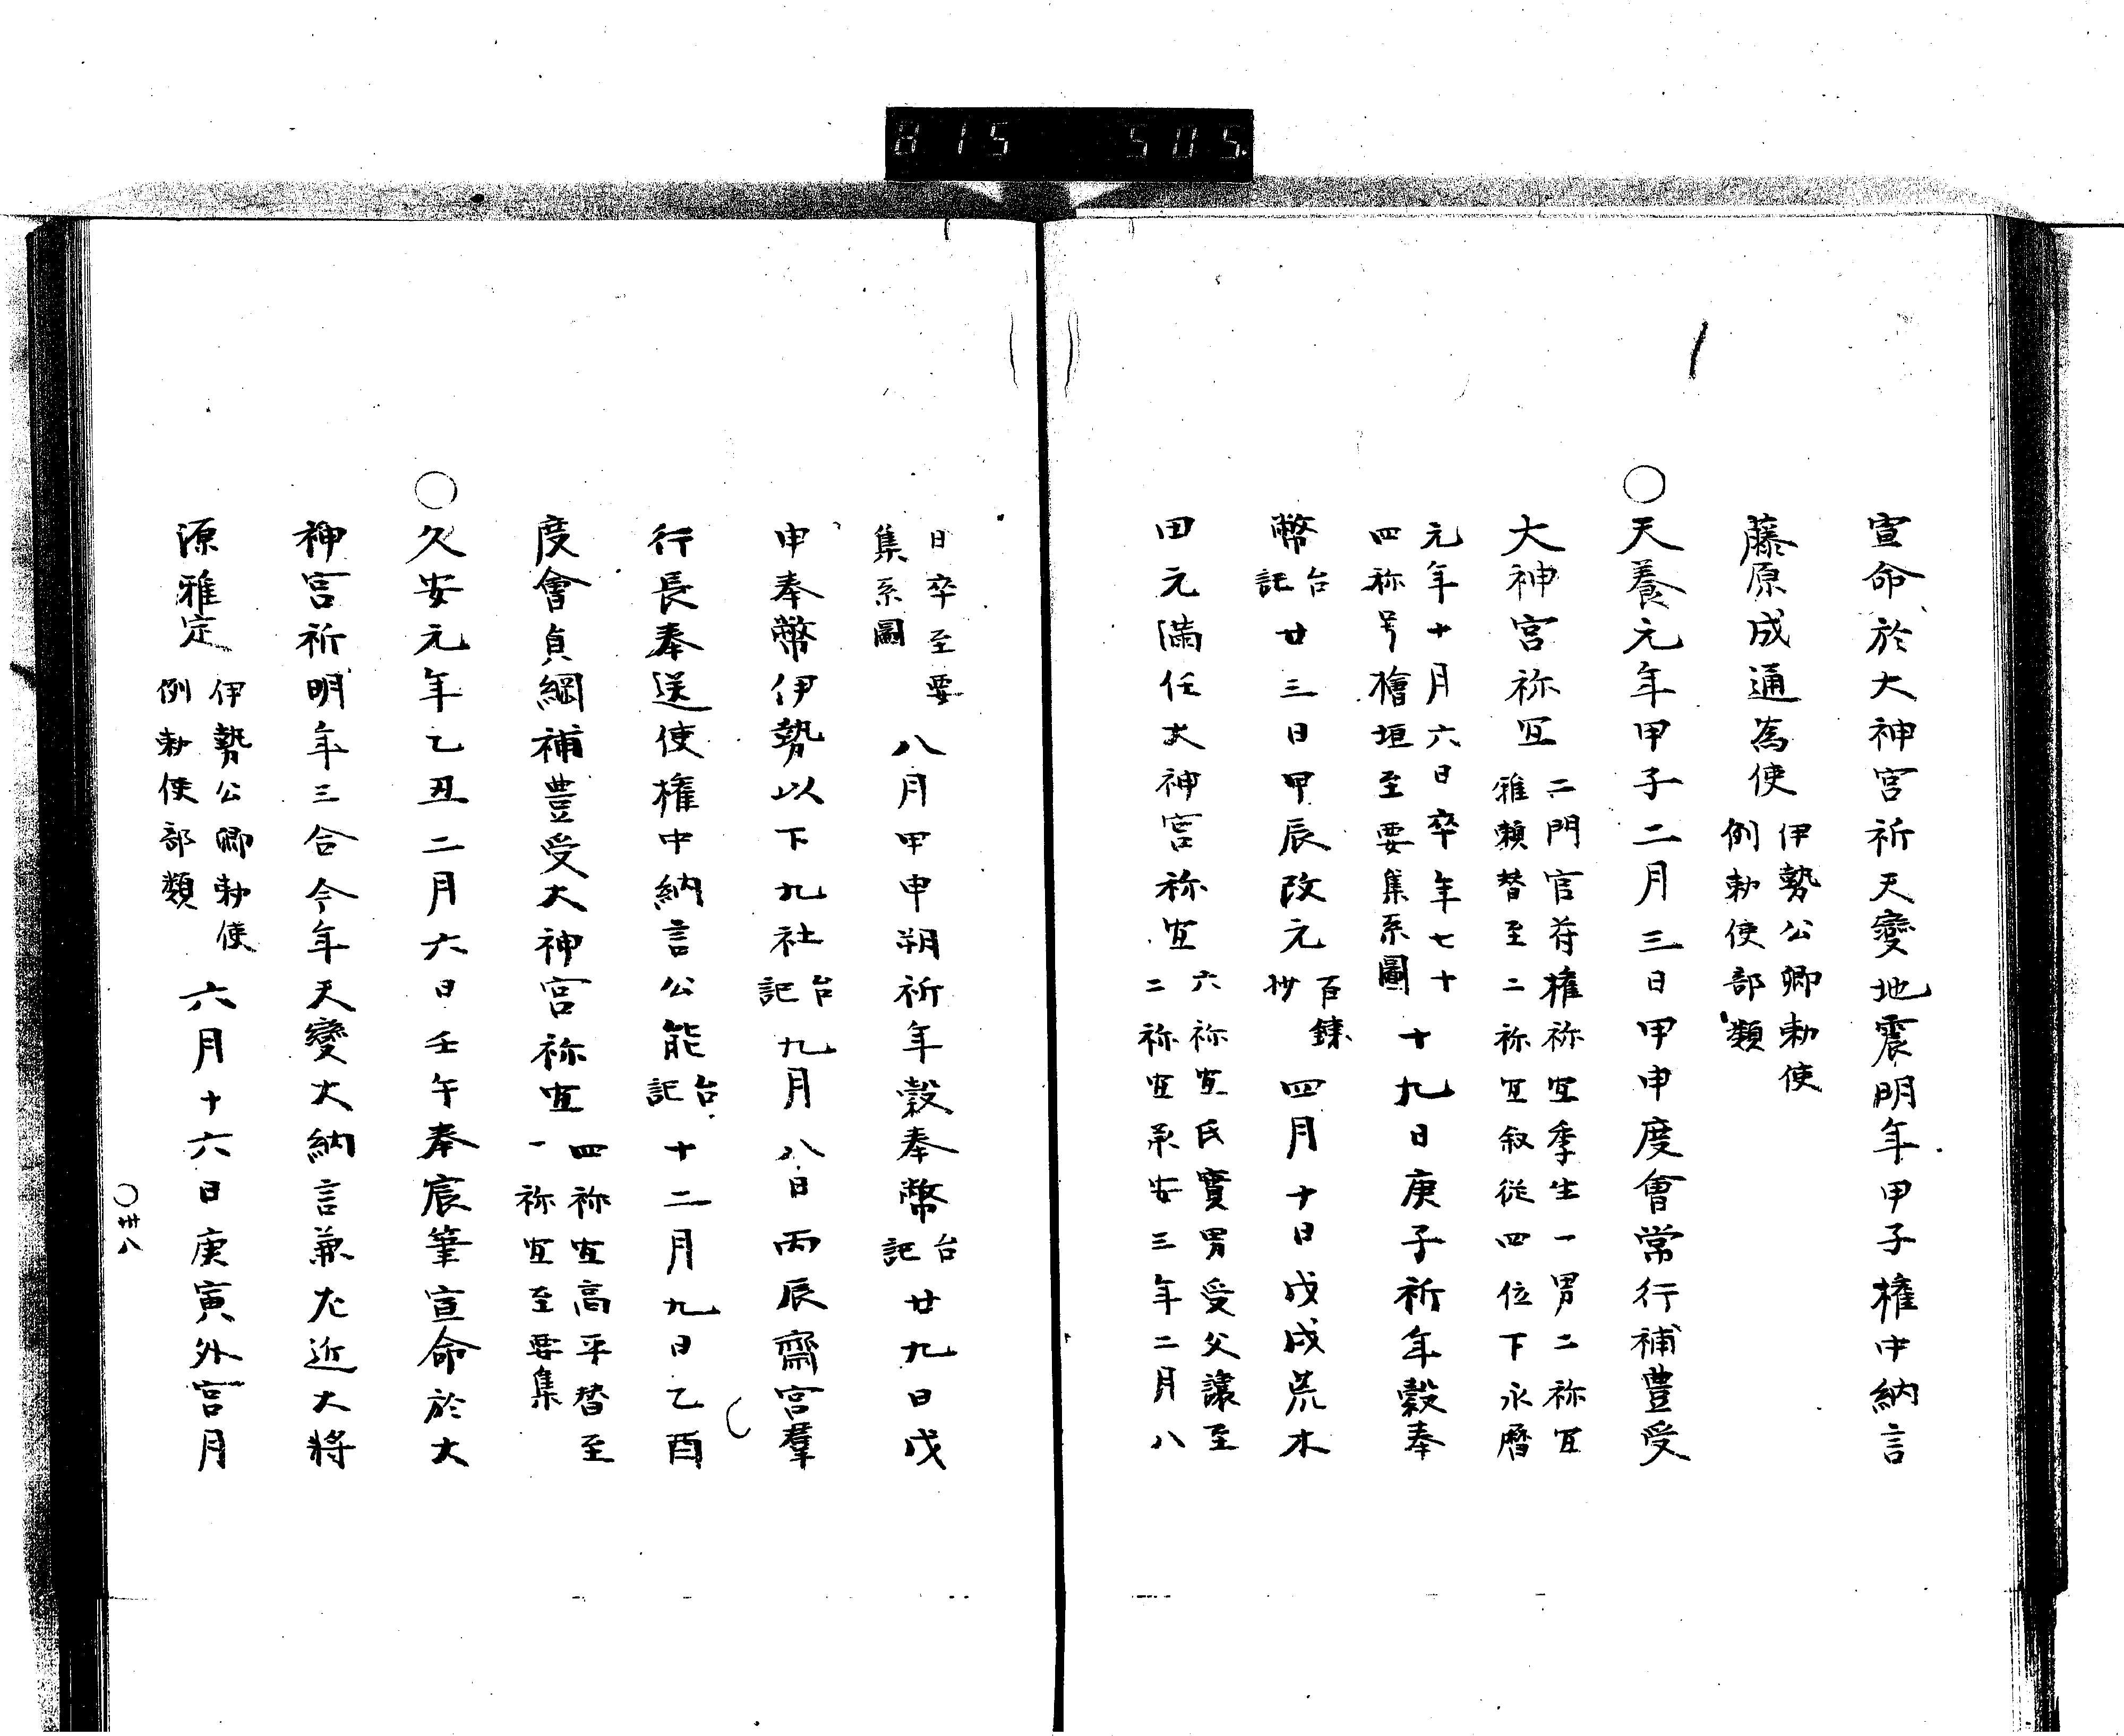 815 505.
宣命於大神宮祈天變地震明年甲子権中納言
藤原成通為使伊勢公卿勅使
例勅使部類
○天養元年甲子二月三日甲申度會常行補豊受
大神宮祢宜二門官苻権祢宜季生一男二祢宜
雅頼替至二祢宜叙従四位下永暦
元年十月六日卒年七十
四称号檜垣至要集系圖十九日庚子祈年穀奉
幣台
記廿三日甲辰改元百錬
抄四月十日戊戌荒木
田元満任大神宮祢宜六祢宜氏實男受父讓至
二祢宜承安三年二月八
日卒至要
集系圖八月甲申朔祈年穀奉幣台
記廿九日戊
申奉幣伊勢以下九社台
記九月八日丙辰齋宮羣
行長奉送使権中納言公能台
記十二月九日乙酉
度會貞綱補豊受大神宮祢宜四祢宜高平替至
一祢宜至要集
○久安元年乙丑二月六日壬午奉宸筆宣命於大
神宮祈明年三合今年天變大納言兼左近大将
源雅定伊勢公卿勅使
例勅使部類六月十六日庚寅外宮月
○卅八